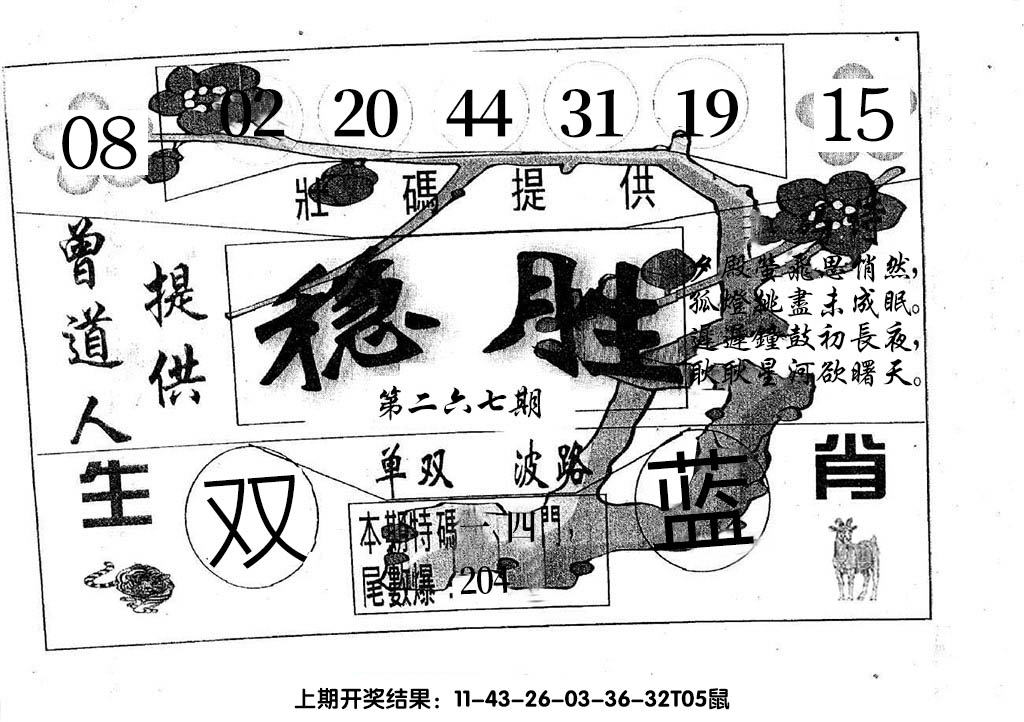 08 02 20 44 31 19 15
壯碼提供
曾道人
提供
稳胜
第二六七期
夕殿萤飛思悄然，
孤燈挑盡未成眠。
遲遲鐘鼓初長夜，
耿耿星河欲曙天。
生
双
单双 波路
蓝
肖
本期特碼一、四門，
尾數爆：204
上期开奖结果：11-43-26-03-36-32T05鼠